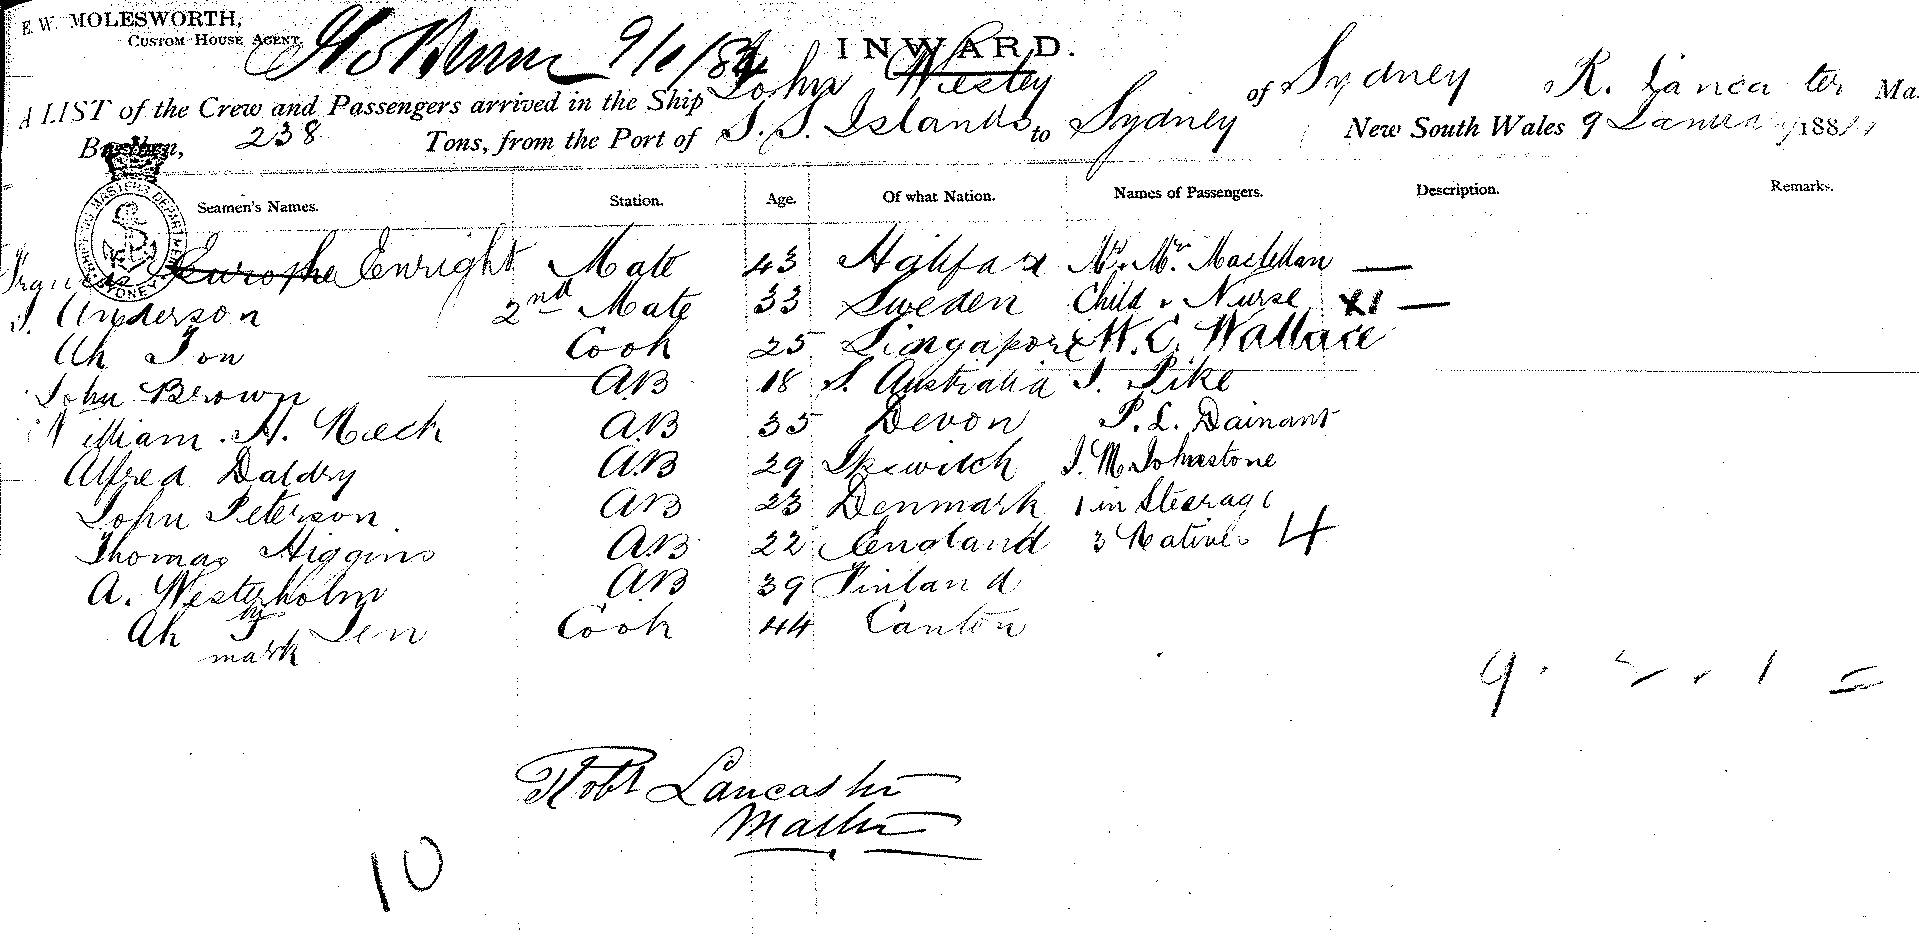 E. W. MOLESWORTH,
CUSTOM HOUSE AGENT
9/1/84
INWARD.
A LIST of the Crew and Passengers arrived in the Ship John Wesley of Sydney R. Lancaster Ma
Burthen, 238 Tons, from the Port of S. S. Islands to Sydney New South Wales 9 January 188
Seamen's Names. Station. Age. Of what Nation. Names of Passengers. Description. Remarks.
Francis Enright Mate 43 Halifax Mr. Mrs. Maclellan —
J. Anderson 2nd Mate 33 Sweden Child & Nurse X1 —
Ah Ton Cook 25 Singapore W. C. Wallace
John Brown AB 18 S. Australia J. Pike
William. H. AB 35 Devon P. L. Dainant
Alfred Daldry AB 29 Ipswitch J. M. Johnstone
John Peterson AB 23 Denmark 1 in Steerage
Thomas Higgins AB 22 England 3 Natives 4
A. Westerholm AB 39 Finland
Ah Ten Cook 44 Canton
mark
9 . . 1 =
Robt Lancaster
Master
10